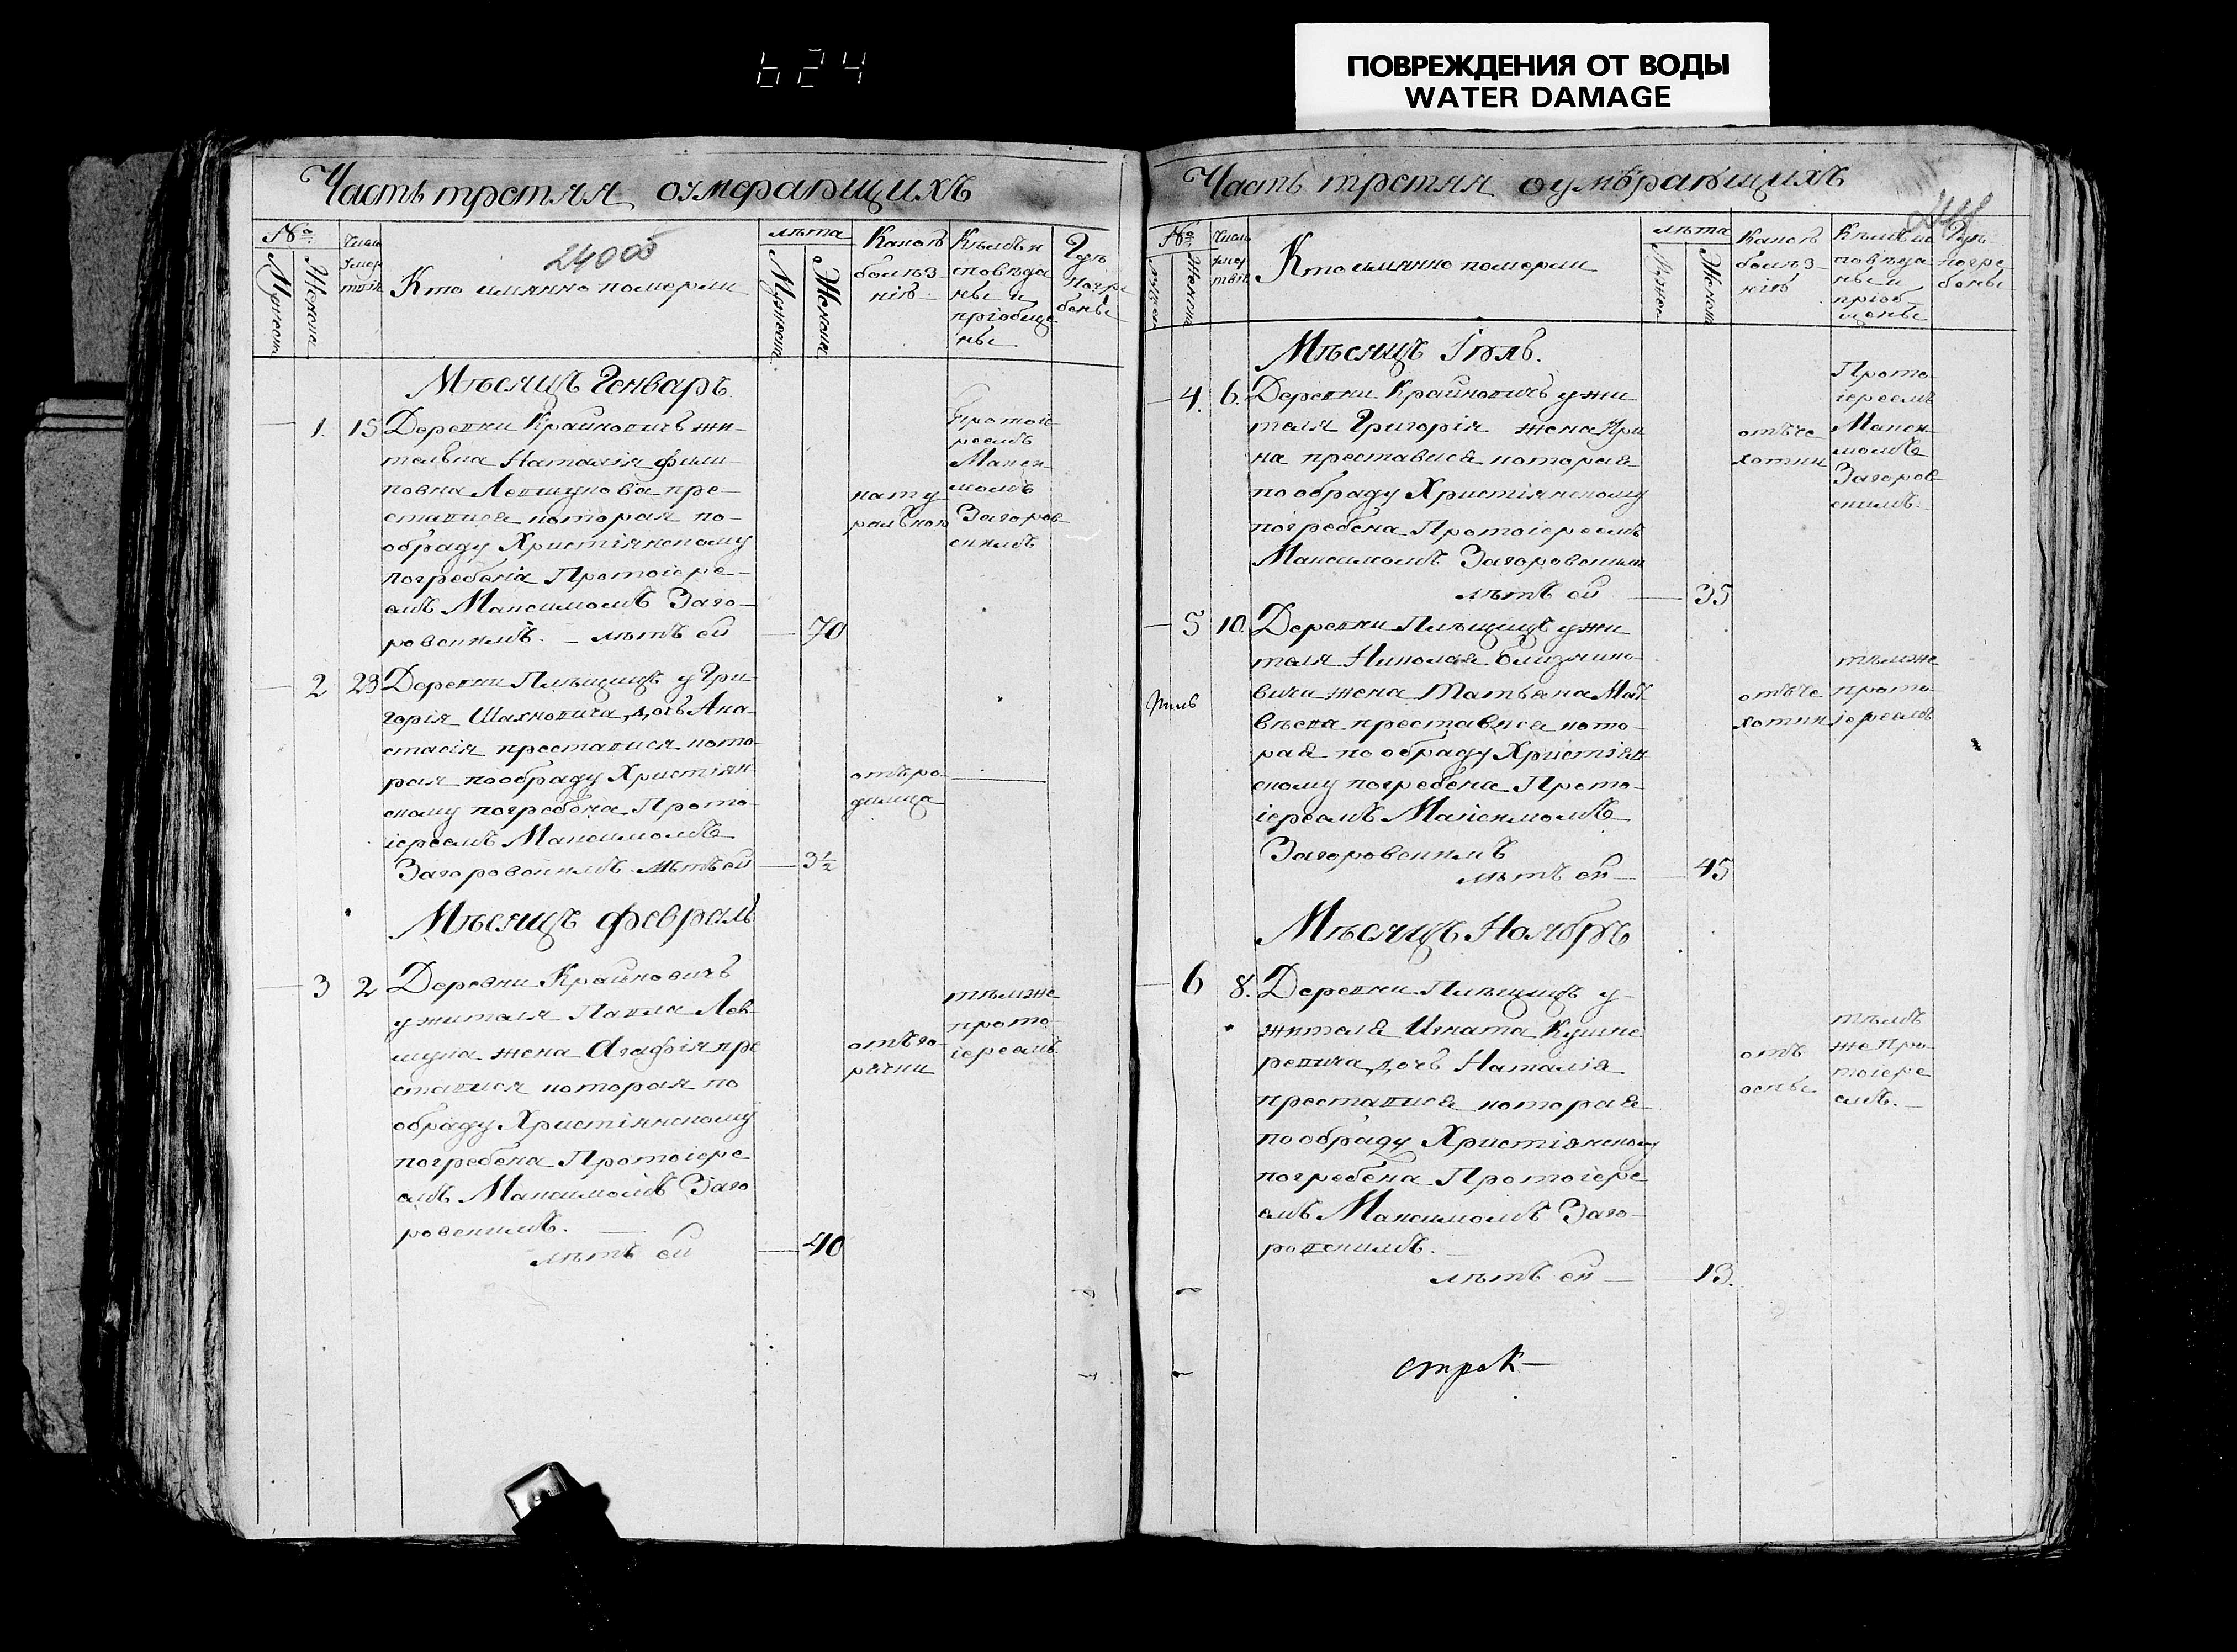 624
ПОВРЕЖДЕНИЯ ОТ ВОДЫ
WATER DAMAGE
Часть третяя оумерающихъ
№
Мужеска
Женска
Число
умер
твій
24005
Кто имянно померли
лѣта
Мужеска
Женска
Какою
болѣз
нію
Кѣмъ и
сповѣда
ны и
пріобще
ны
Гдѣ
погре
бены
Мѣсяцъ Генварь
1. 15 Деревни Крайновичь жи-
телька Наталія Фили-
повна Левшукова пре-
ставися которая по-
обраду Христіянскому
погребена Протоіере-
емъ Максимомъ Заго-
ровскимъ. – лѣтъ ей — 70
нату
ральною
Протоіе
реемъ
Макси
момъ
Загоров
скимъ
2 23 Деревни Плѣщицъ у Гри-
горія Шахновича дочь Ана-
стасія преставися кото-
рая по обраду Христіян
скому погребена Прото-
іереемъ Максимомъ
Загоровскимъ лѣтъ ей — 3½
отъ ро
димца
Мѣсяцъ Февраль
3 2 Деревни Крайновичь
у жителя Павла Лев-
шука жена Агафія пре
ставися которая по
обраду Христіянскому
погребена Протоіере
емъ Максимомъ Заго
ровскимъ. —
лѣтъ ей — 40
отъ го
рячки
тѣмже
прото
іереемъ
Часть третяя оумѣрающихъ
№
Мужеска
Женска
Число
умер
твій
Кто имянно померли
лѣта
Мужеска
Женска
Какою
болѣз
нію
Кѣмъ ис
повѣда
ны и
пріоб
щены
Гдѣ
погре
бены
Мѣсяцъ Іюль.
4. 6. Деревни Крайновичь у жи
теля Григорія жена Ири
на преставися которая
по обраду Христіянскому
погребена Протоіереемъ
Максимомъ Загоровским
лѣтъ ей — 35
отъ че
хотки
Прото
іереемъ
Макси
момъ
Загоров
скимъ.
5 10. Деревни Плѣщицъ у жи
теля Николая
вичи жена Татьяна Мат
вѣева преставися кото-
рая по обраду Христіян
скому погребена Прото-
іереемъ Максимомъ
Загоровскимъ
лѣтъ ей — 45
отъ че
хотки
тѣмже
прото
іереемъ
Мѣсяцъ Ноябрь
6 8. Деревни Плѣщицъ у-
жителя Игната Кушне
ревича дочь Наталія
преставися которая
по обраду Христіянскому
погребена Протоіере
емъ Максимомъ Заго-
ровскимъ.
лѣтъ ей — 13.
отъ
оспы
тѣмъ
же Про
тоіере
емъ. —